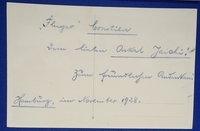 "Flieger" Cornelien
dem lieben Onkel
Zum freundlichen Andenken
Hamburg, im November 1928.